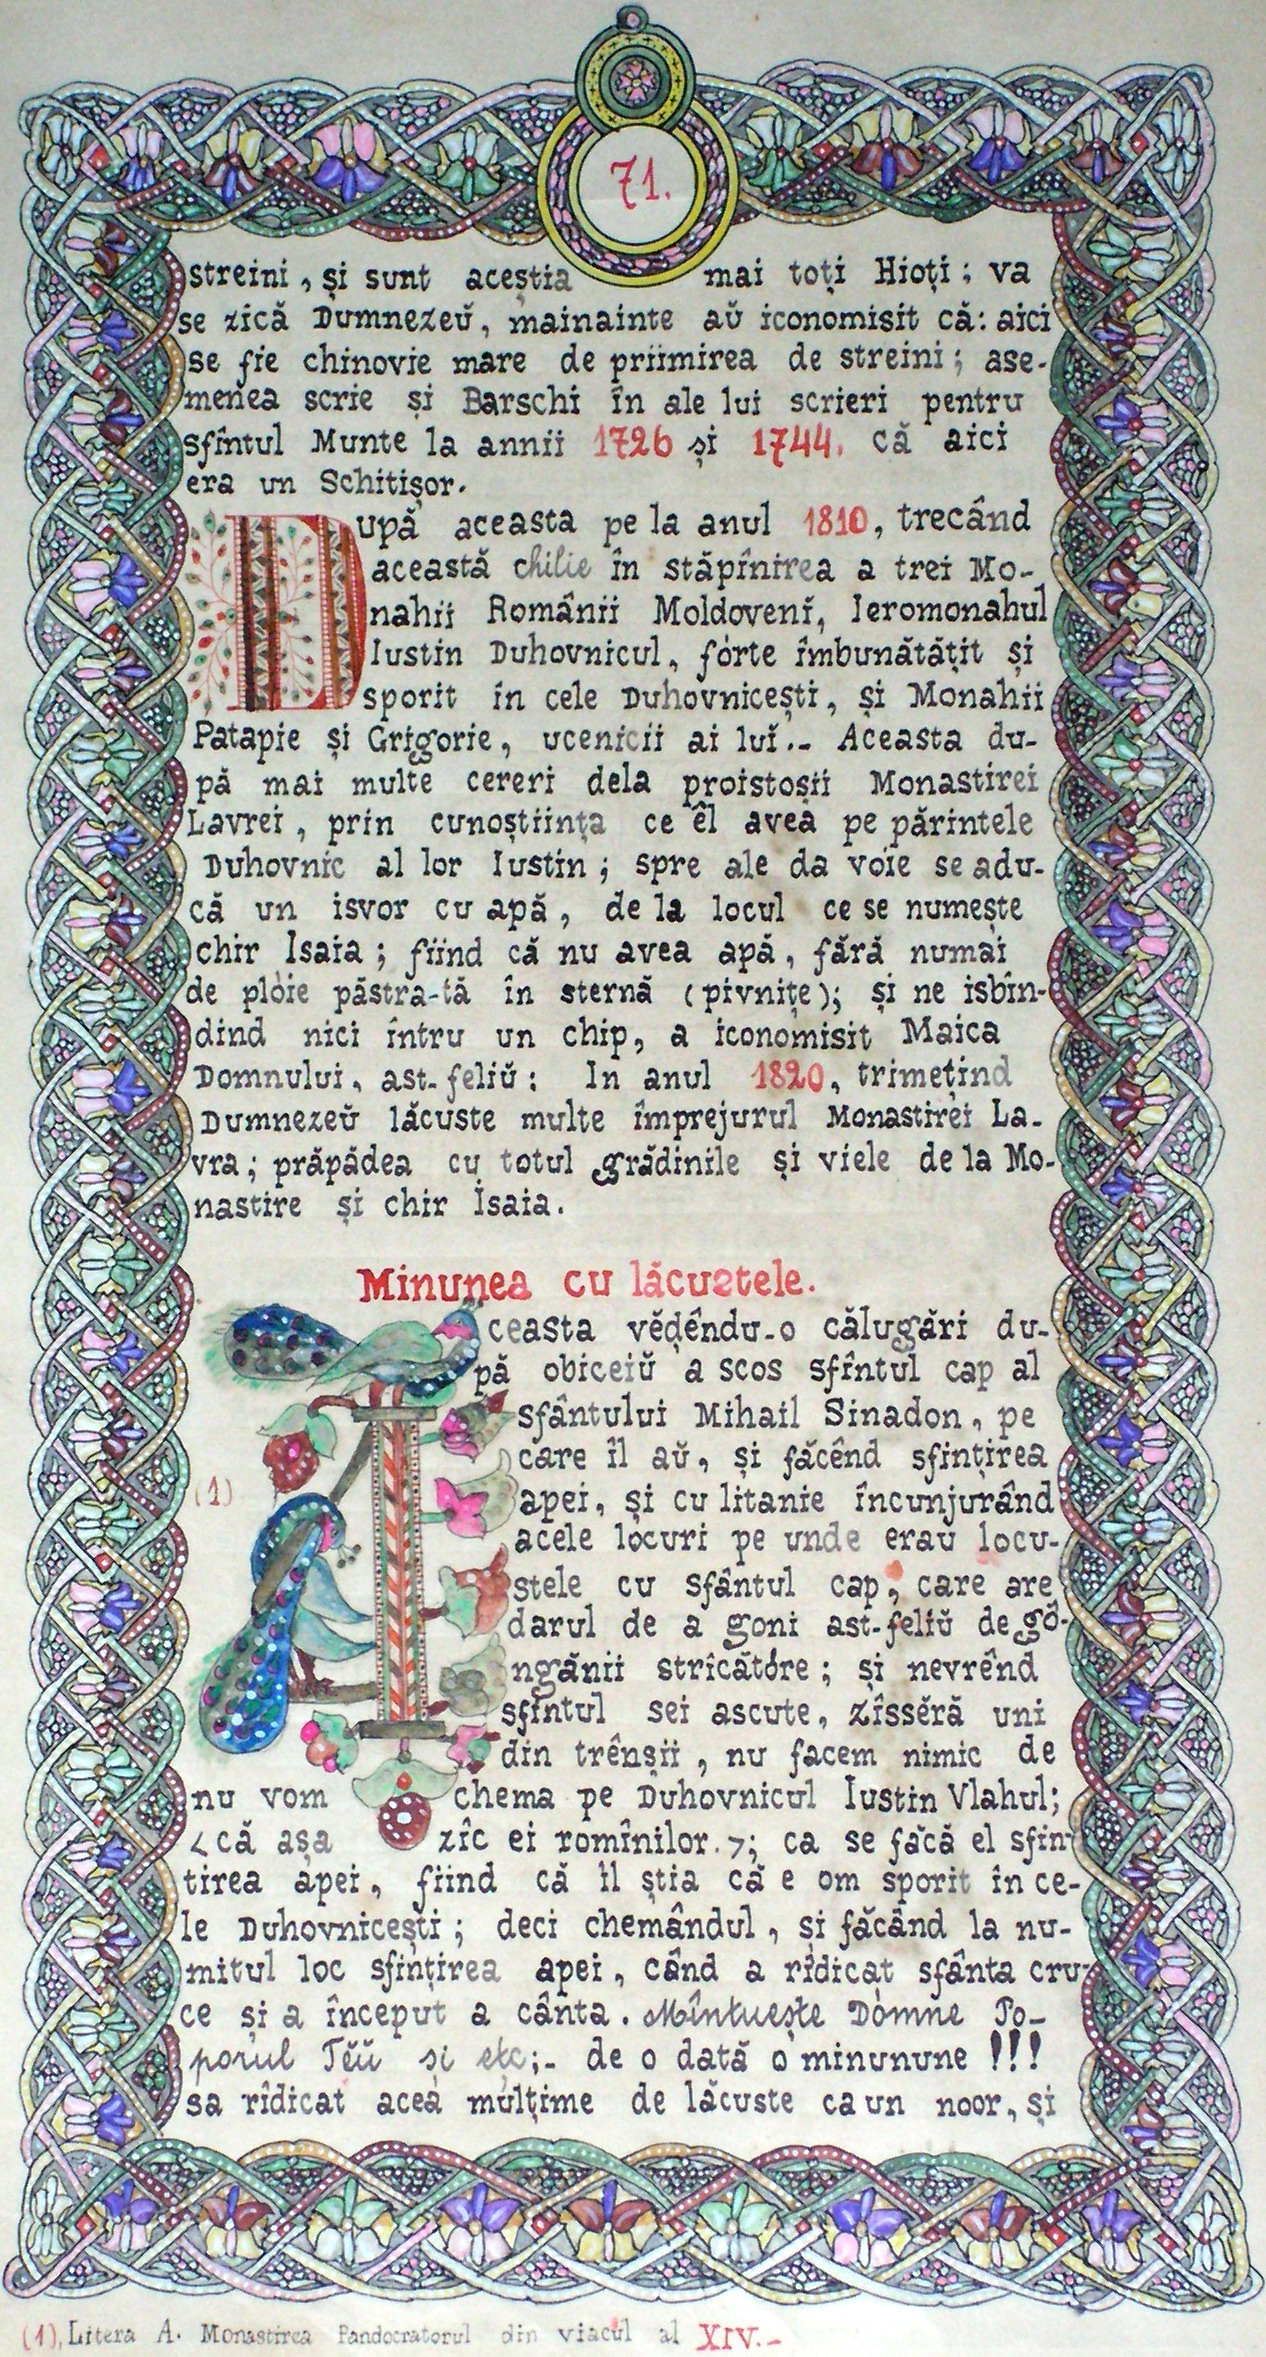 71.
streini, și sunt aceștia mai toți Hioți; va
se zică Dumnezeŭ, mainainte aŭ iconomisit că: aici
se fie chinovie mare de priimirea de streini; ase-
menea scrie și Barschi în ale lui scrieri pentru
sfîntul Munte la annii 1726 și 1744. că aici
era un Schitișor.
După aceasta pe la anul 1810, trecând
această chilie în stăpînirea a trei Mo-
nahii Românii Moldovenĭ, Ieromonahul
Iustin Duhovnicul, fórte îmbunătățit și
sporit în cele Duhovnicești, și Monahii
Patapie și Grigorie, ucenicii ai luĭ.- Aceasta du-
pă mai multe cereri dela proistoșii Monastirei
Lavrei, prin cunoștiința ce êl avea pe părintele
Duhovnic al lor Iustin; spre ale da voie se adu-
că un isvor cu apă, de la locul ce se numește
chir Isaia; fiind că nu avea apă, fără numai
de plòie păstra-tă în sternă (pivnițe); și ne isbîn-
dind nici întru un chip, a iconomisit Maica
Domnului, ast-feliŭ: In anul 1820, trimețind
Dumnezeŭ lăcuste multe împrejurul Monastirei La-
vra; prăpădea cu totul grădinile și viele de la Mo-
nastire și chir Isaia.
Minunea cu lăcustele.
Aceasta vĕḑêndu-o călugări du-
pă obiceiŭ a scos sfîntul cap al
sfântului Mihail Sinadon, pe
care îl aŭ, și făcênd sfințirea
(1)
apei, și cu litanie încunjurând
acele locuri pe unde erau locu-
stele cu sfântul cap, care are
darul de a goni ast-feliŭ de gô-
ngănii stricătóre; și nevrênd
sfîntul sei ascute, zîssĕră uni
din trênșii, nu facem nimic de
nu vom chema pe Duhovnicul Iustin Vlahul;
<că așa zîc ei romînilor.>; ca se facă el sfin-
tirea apei, fiind că îl știa că e om sporit în ce-
le Duhovnicești; deci chemândul, și făcând la nu-
mitul loc sfințirea apei, când a rîdicat sfânta cru-
ce și a început a cânta. Mîntuește Dómne Po-
porul Tĕŭ și etc;- de o dată o minunune !!!
sa rîdicat acea mulțime de lăcuste ca un noor, și
(1), Litera A. Monastirea Pandocratorul din viacul al XIV.-